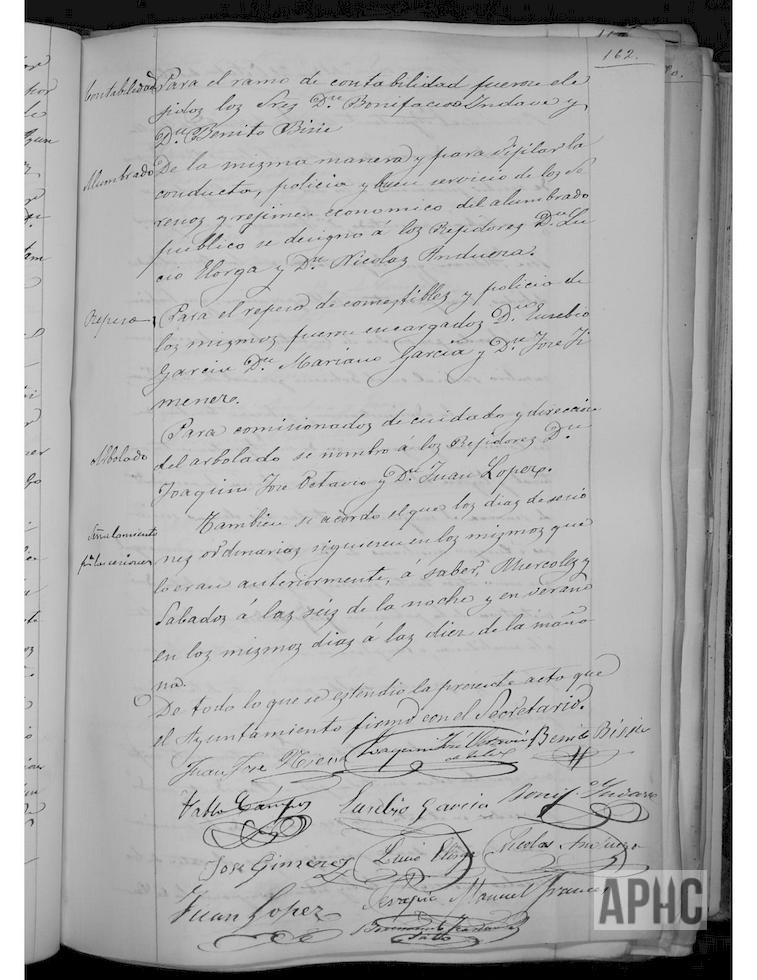 162.
Contabilidad Para el ramo de contabilidad fueron ele
jidos los Sres Dn. Bonifacio Indave y
Dn. Benito Bisie
Alumbrado De la misma manera y para vijilar la
conducta, policia y buen servicio de los Se
renos y rejimen economico del alumbrado
publico se designó á los Rejidores Dn. Lu
cio Elorga y Dn. Nicolas Anduera.
Repeso Para el repeso de comestibles y policia de
los mismos fueron encargados Dn. Eusebio
Garcia Dn. Mariano Garcia y Dn. Jose Ji
menero.
Para comisionados de cuidado y direccion
Arbolado del arbolado se nombró á los Rejidores Dn.
Joaquin Jose Octavio y Dn. Juan Lopez.
Tambien se acordo el que los dias de secio
Señalamiento nes ordinarias siguiesen en los mismos que
pa. las seciones lo eran anteriormente, á saber, Miercoles y
Sabados á las seis de la noche y en verano
en los mismos dias á las diez de la maña
na.
De todo lo que se estendio la presente acto que
el Ayuntamiento firmó con el Secretario.
Juan Jose Joaquin José Benito Bisie
Pablo Eusebio Garcia Bonif.o Indave
Jose Gimenez Lucio Nicolas
Juan Lopez Manuel
APHC